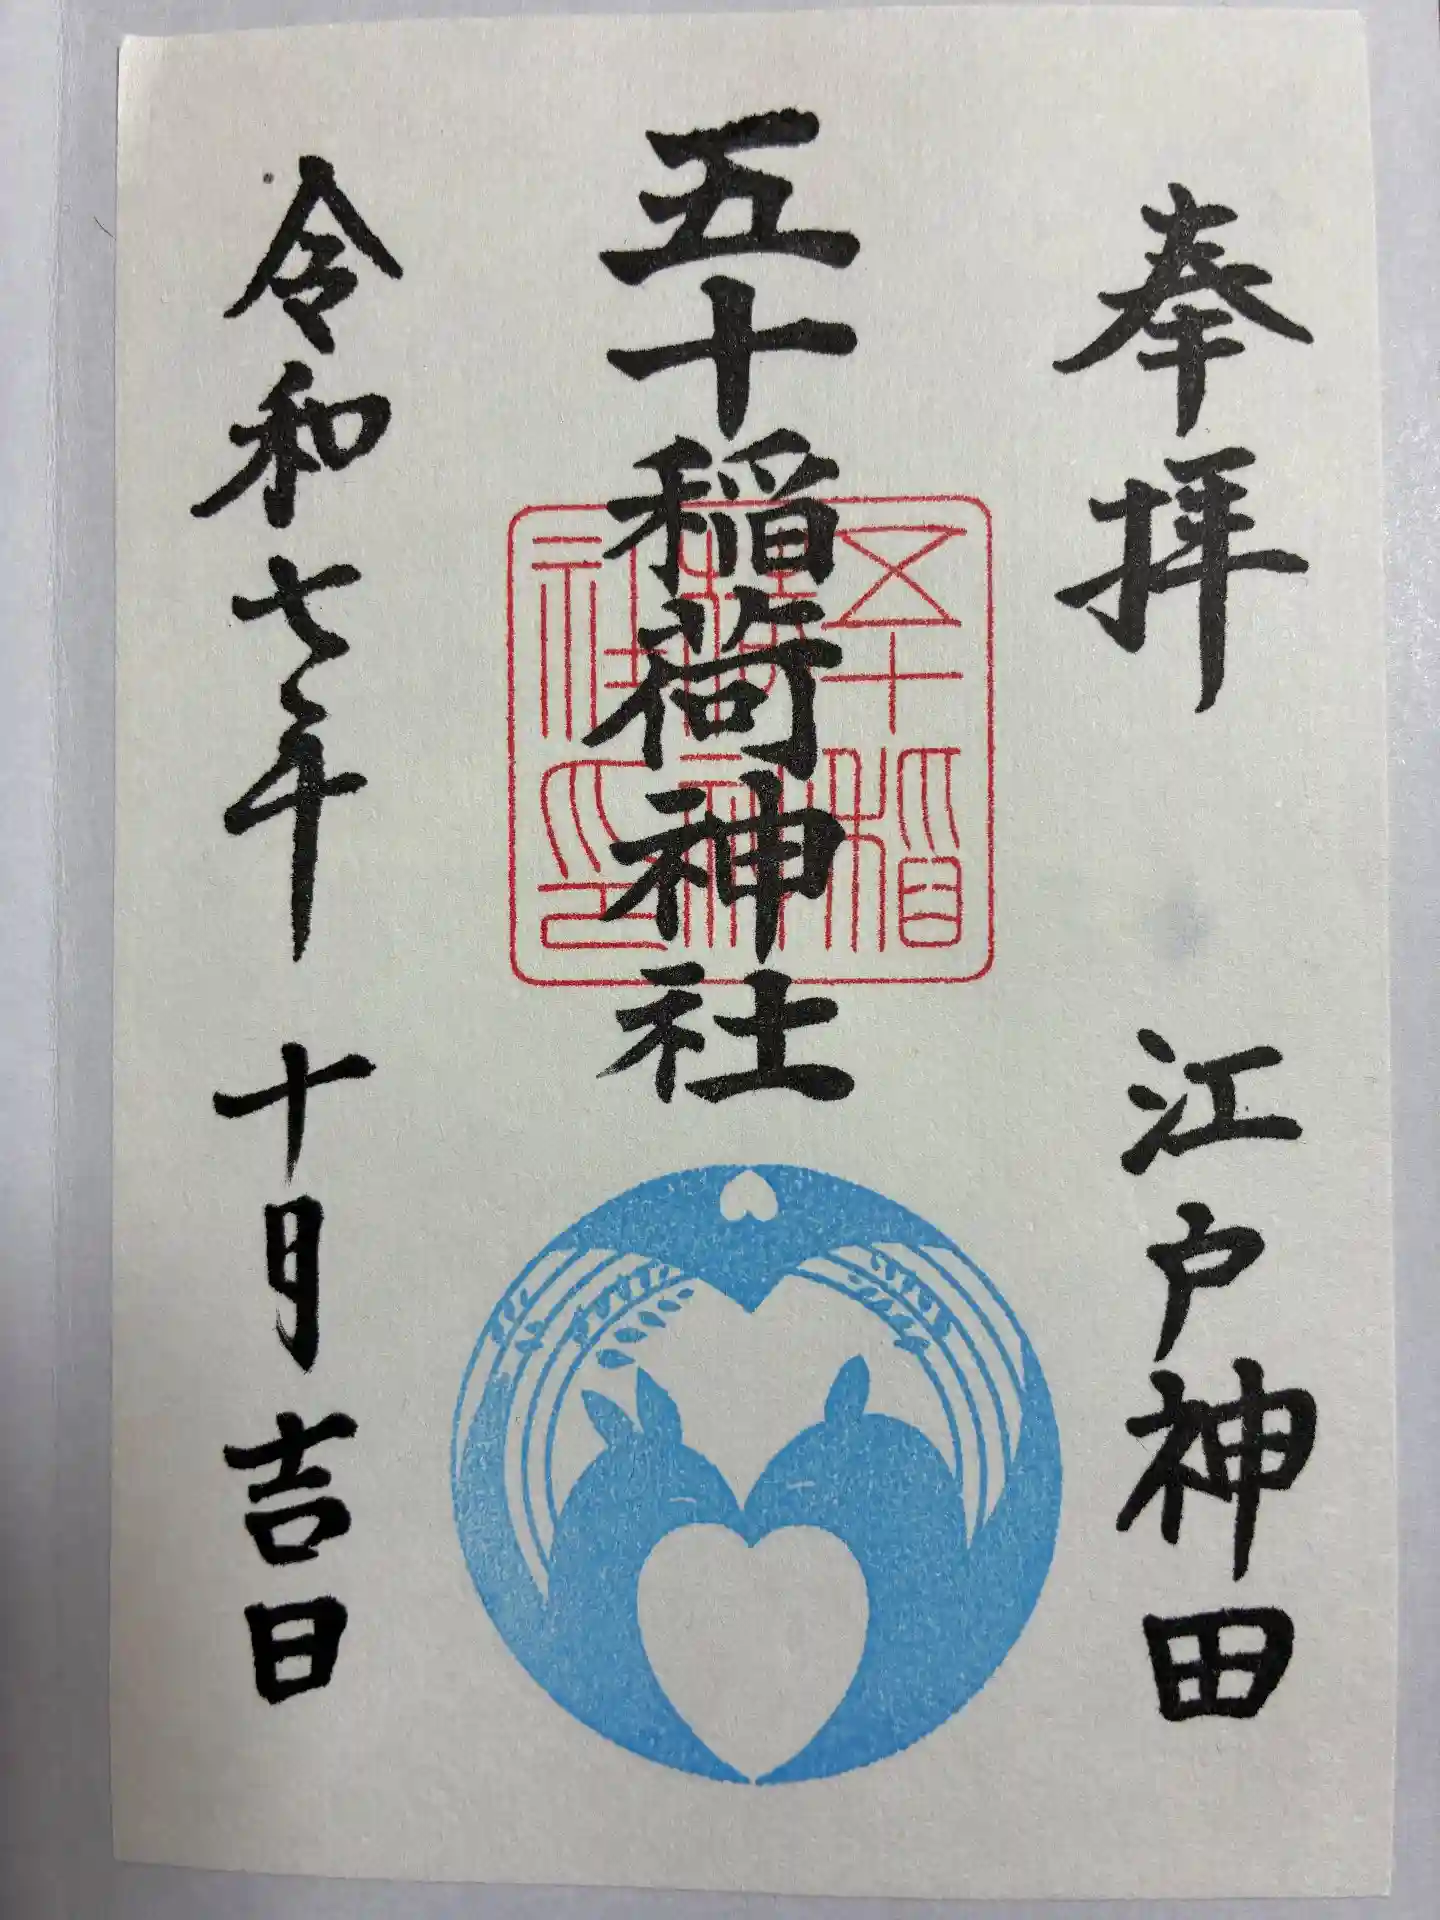 奉拝　江戸神田
五十稲荷神社
五十稲
荷神
社印
令和七年　十月吉日